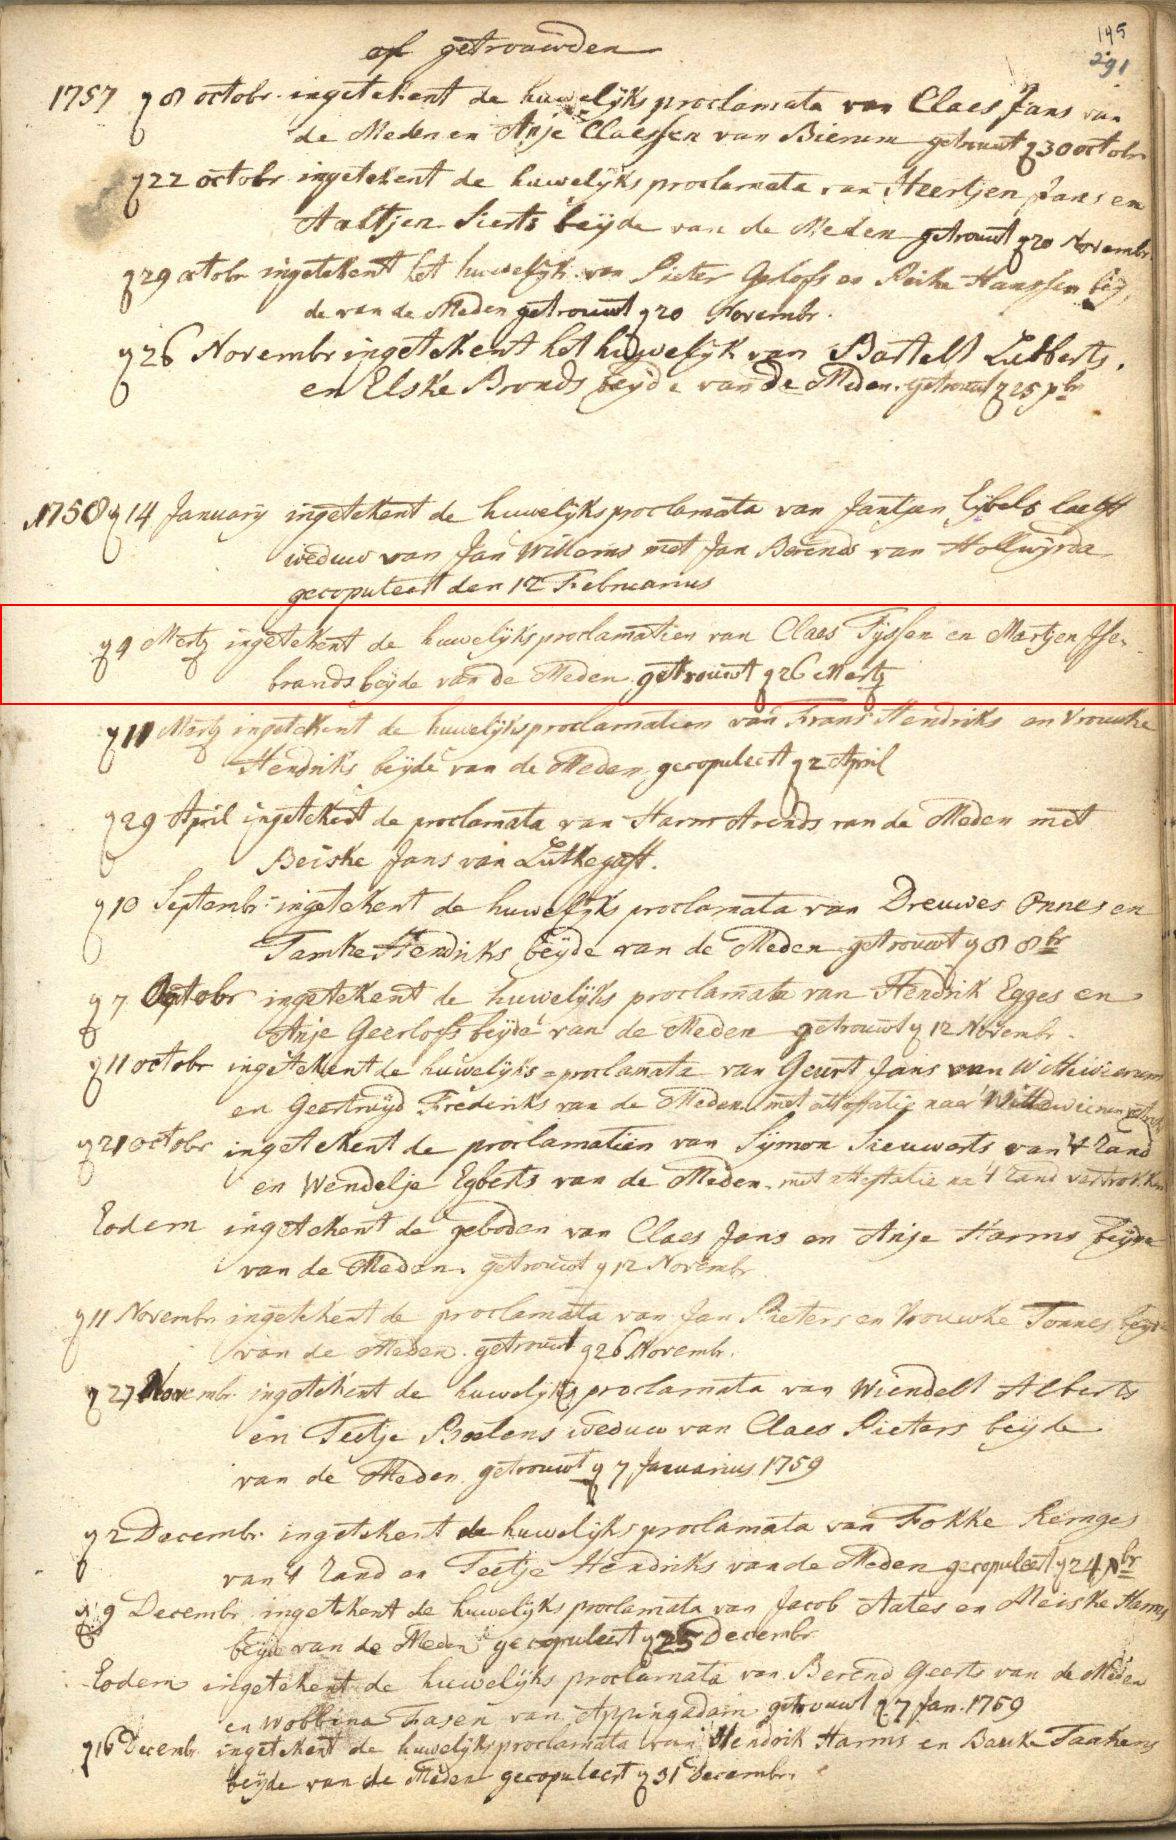 of getrouwden
195
291
1757 d 8 octobr. ingetekent de huwelijks proclamata van Claes Jans van
de Meden en Anje Claessen van Bierum getrouwt d 30 octobr
d 22 octobr ingetekent de huwelijks proclamata van Heertjen Jans en
Aaltjen Sierts beijde van de Meden getrouwt d 20 Novembr.
d 29 octobr ingetekent het huwelijk van Pieter Gelofs en Reike Hanssen beij
de van de Meden getrouwt d 20 Novembr.
d 26 Novembr ingetekent het huwelijk van Bartelt Lubberts.
en Elske Bronds beijde van de Meden. getrouwt d 25 xbr
1758 d 14 Januarij ingetekent de huwelijks proclamata van Jantjen Eijbels laetst
weduw van Jan Willems met Jan Berends van Hollwijrda
gecopuleert den 12 Februarius
d 4 Mertz ingetekent de huwelijks proclamatien van Claes Tijssen en Martjen Jse-
brands beijde van de Meden getrouwt d 26 Mertz
d 11 Mertz ingetekent de huwelijks proclamatien van Frans Hendriks en Vrouwke
Hendriks beijde van de Meden gecopuleert d 2 April
d 29 April ingetekent de proclamata van Harm Arends van de Meden met
Beiske Jans van Lutkegast.
d 10 Septembr. ingetekent de huwelijks proclamata van Dreuwes Onnes en
Tamke Hendriks beijde van de Meden getrouwt d 8 8br
d 7 Octobr ingetekent de huwelijks proclamata van Hendrik Egges en
Anje Geerlofs beijde van de Meden getrouwt d 12 Novembr.
d 11 octobr ingetekent de huwelijks = proclamata van Geurt Jans van Wittewierum
en Geertruijd Frederiks van de Meden. met attestatie naar Wittewierum
d 21 octobr ingetekent de proclamatien van Sijmon Sieuwerts van 't Zand
en Wendelje Egberts van de Meden. met attestatie na 't Zand vertrokken
Eodem ingetekent de geboden van Claes Jans en Anje Harms beijde
van de Meden. getrouwt d 12 Novembr
d 11 Novembr ingetekent de proclamata van Jan Pieters en Vrouwke Tonnes beijde
van de Meden. getrouwt d 26 Novembr.
d 27 Novembr ingetekent de huwelijks proclamata van Wiendelt Alberts
en Teetje Boelens weduw van Claes Pieters beijde
van de Meden. getrouwt d 7 Januarius 1759
d 2 Decembr. ingetekent de huwelijks proclamata van Fokke Remges
van 't Zand en Teetje Hendriks van de Meden gecopuleert d 24 xbr
d 9 Decembr ingetekent de huwelijks proclamata van Jacob Aates en Meiske Harms
beijde van de Meden gecopuleert d 25 Decembr
Eodem ingetekent de huwelijks proclamata van Berend Geerts van de Meden
en Wobbina Fasen van Appingadam getrouwt d 7 Jan. 1759
d 16 Decembr ingetekent de huwelijks proclamata van Hendrik Harms en Bauke Taakens
beijde van de Meden gecopuleert d 31 Decembr.